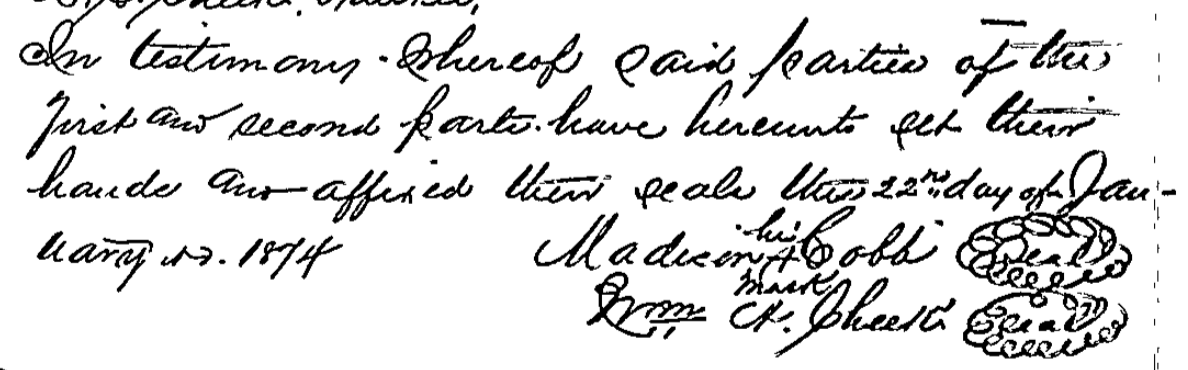 In testimony whereof said parties of the
first and second parts have hereunto set their
hands and affixed their seals this 22nd day of Jan-
uary A.D. 1874 Madison his X mark Cobb Seal
Wm H. Cheek Seal